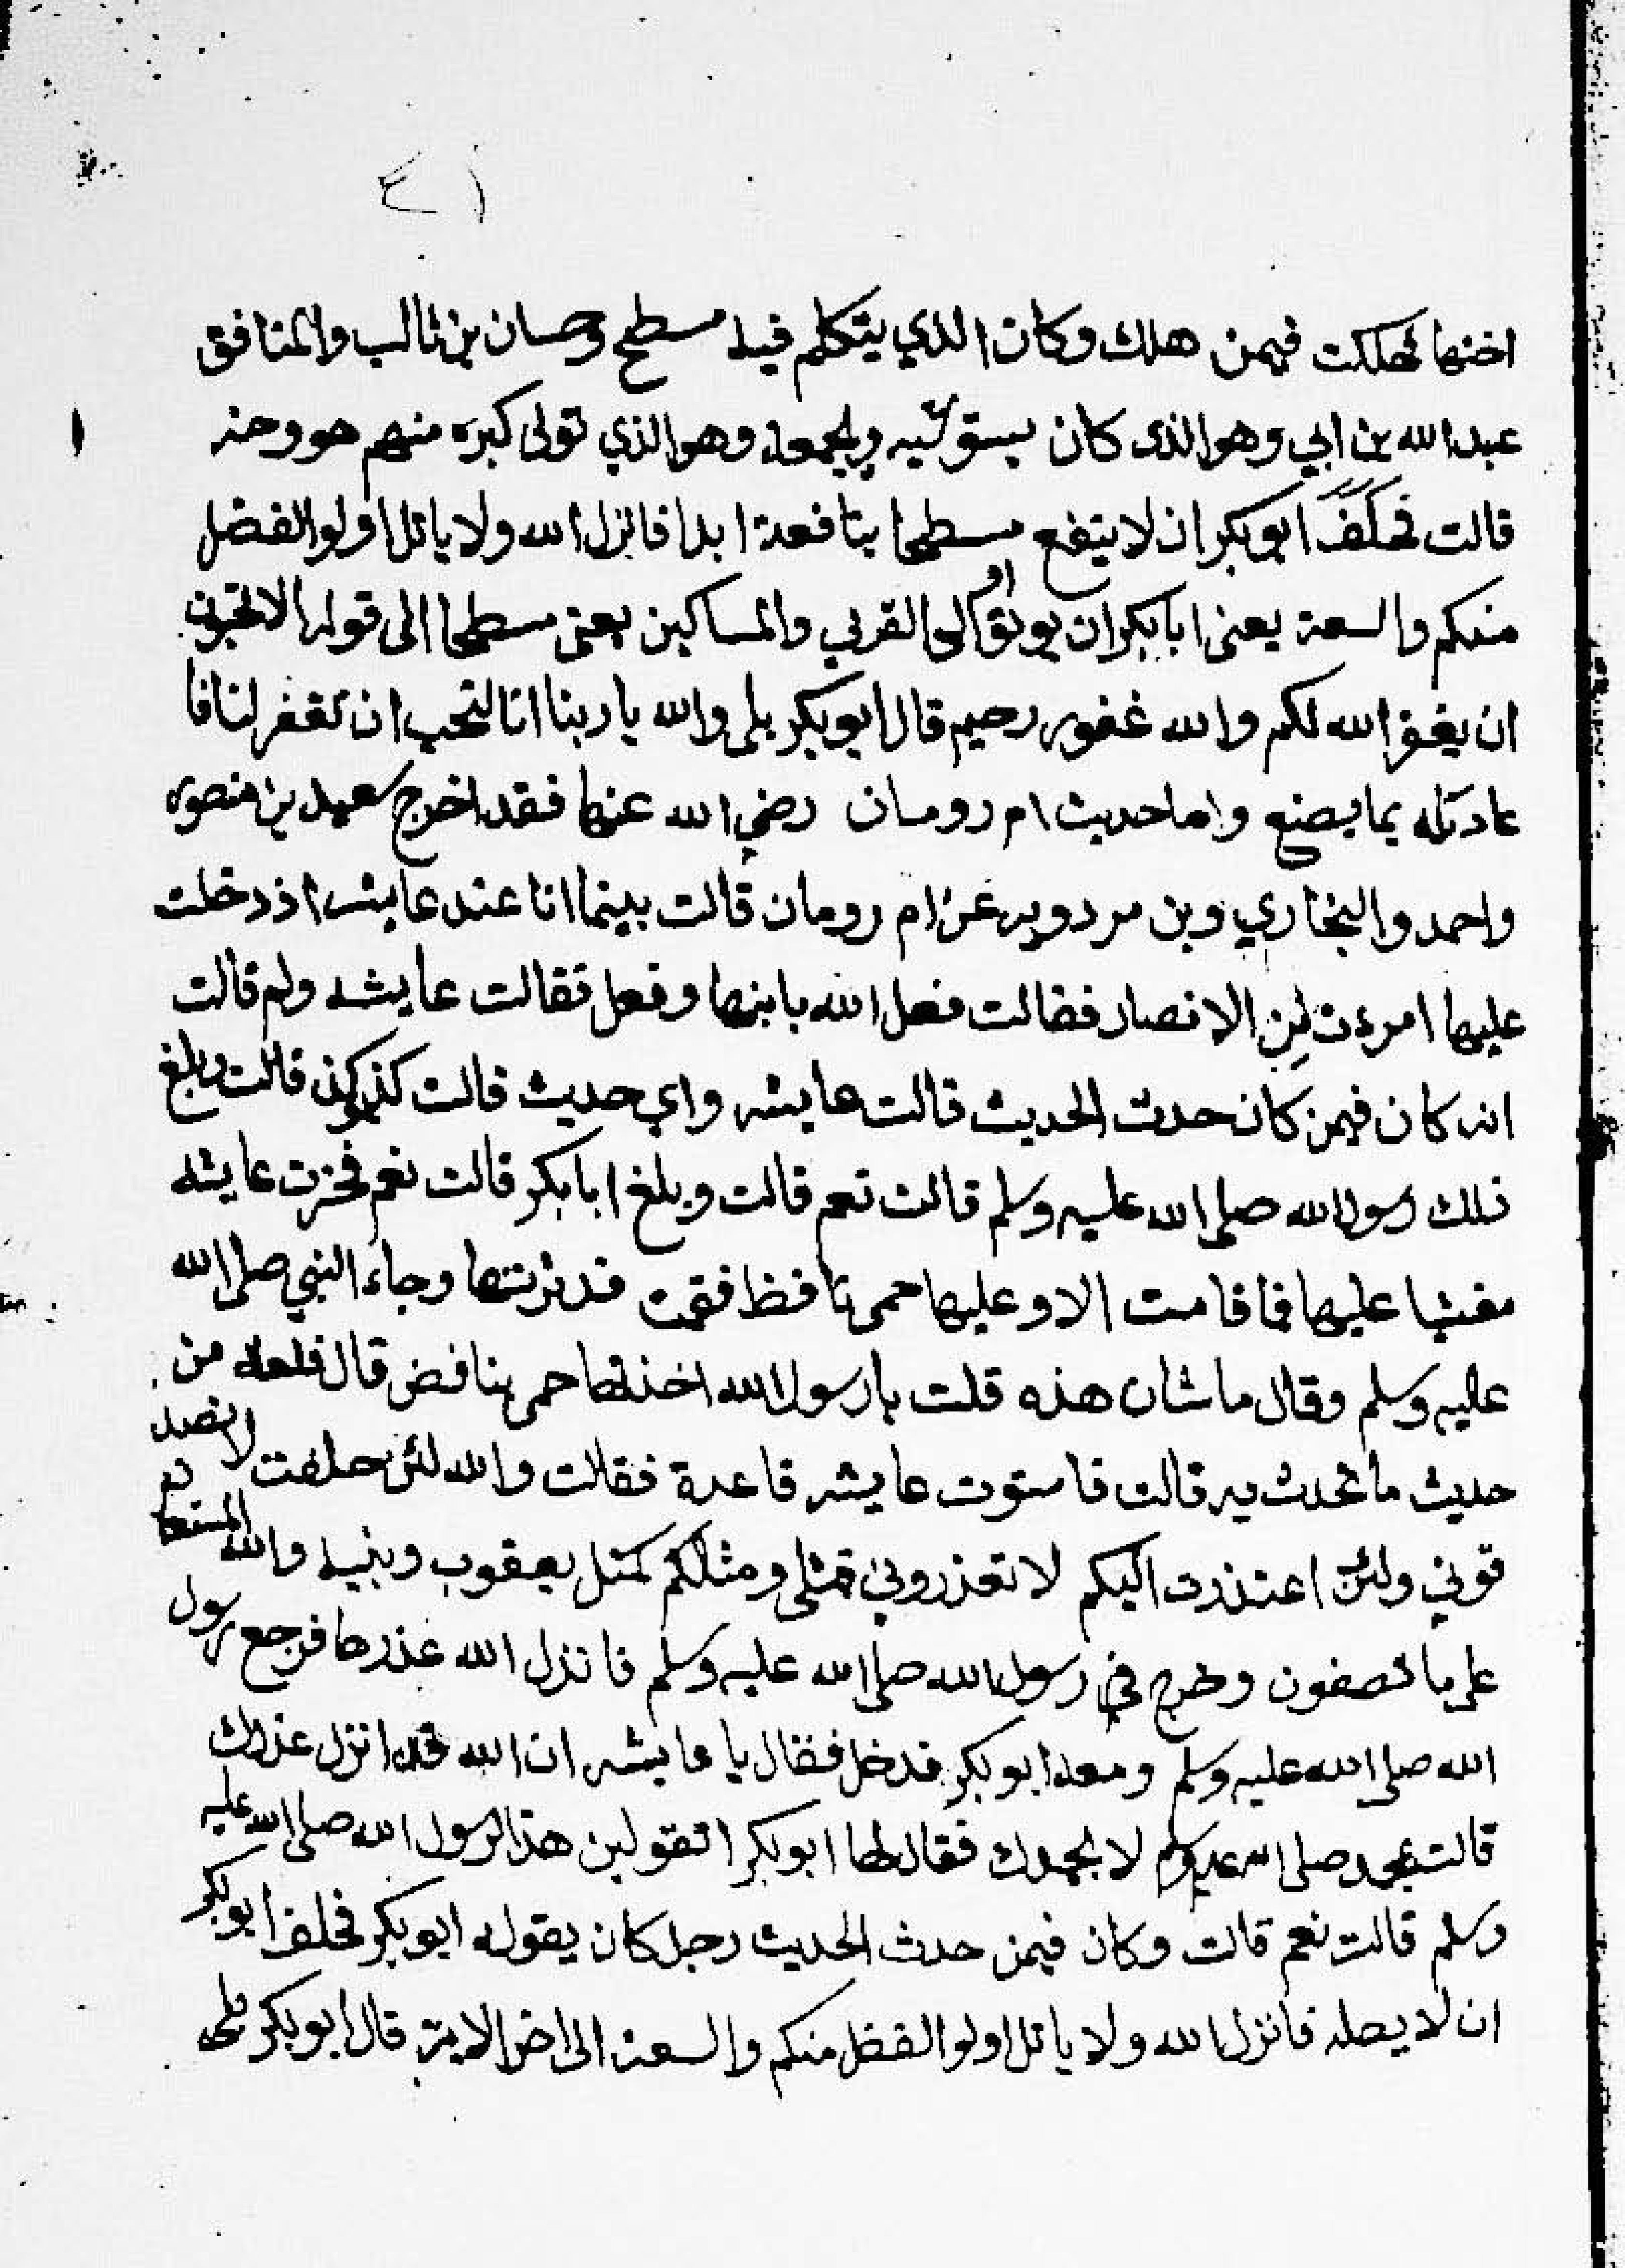 ٤١
اختها فهلكت فيمن هلك وكان الذي يتكلم فيه مسطح وحسان بن ثالب والمنافق
عبد الله بن ابي وهو الذى كان يستوشيه ويجمعه وهو الذي تولى كبره منهم هو وحمنه
قالت فحلف ابو بكر ان لا ينفع مسطحا بنافعة ابدا فانزل الله ولا ياتل اولوا الفضل
منكم والسعة يعنى ابا بكر ان يوتوا اولى القربى والمساكين يعنى مسطحا الى قوله الا تحبون
ان يغفر الله لكم والله غفور رحيم قال ابو بكر بلى والله يا ربنا انا لنحب ان تغفر لنا فا
عاد له بما يصنع واما حديث ام رومان رضي الله عنها فقد اخرج سعيد بن منصور
واحمد والبخاري وبن مردويه عن ام رومان قالت بينما انا عند عايشه اذ دخلت
عليها امرءت من الانصار فقالت فعل الله بابنها وفعل فقالت عايشه ولم قالت
انه كان فيمن كان حدث الحديث قالت عايشه واي حديث قالت كذ وكذ قالت وبلغ
ذلك رسول الله صلى الله عليه وسلم قالت نعم قالت وبلغ ابا بكر قالت نعم فخرت عايشه
مغشيا عليها فما فاقامت الا وعليها حمى نافظ فقمت فدثرتها وجاء النبي صلى الله
عليه وسلم وقال ما شان هذه قلت يا رسول الله اخذتها حمى بنافض قال فلعله من
حديث ما تحدث به قالت فاستوت عايشه قاعدة فقالت والله لئن حلفت لا تصد
قوني ولئن اعتذرت اليكم لا تعذروني فمثلى ومثلكم كمثل يعقوب وبنيه والله المستعا
على ما تصفون وخرج رسول الله صلى الله عليه وسلم فانزل الله عذرها فرجع رسول
الله صلى الله عليه وسلم ومعه ابو بكر فدخل فقال يا عايشه ان الله قد انزل عذرك
قالت بحمد صلى الله عليه وسلم لا بحمدك فقال لها ابو بكر اتقولين هذا لرسول الله صلى الله عليه
وسلم قالت نعم قالت وكان فيمن حدث الحديث رجل كان يقوله ابو بكر فحلف ابو بكر
ان لا يصله فانزل الله ولا ياتل اولوا الفضل منكم والسعة الى اخر الاية قال ابو بكر بلى